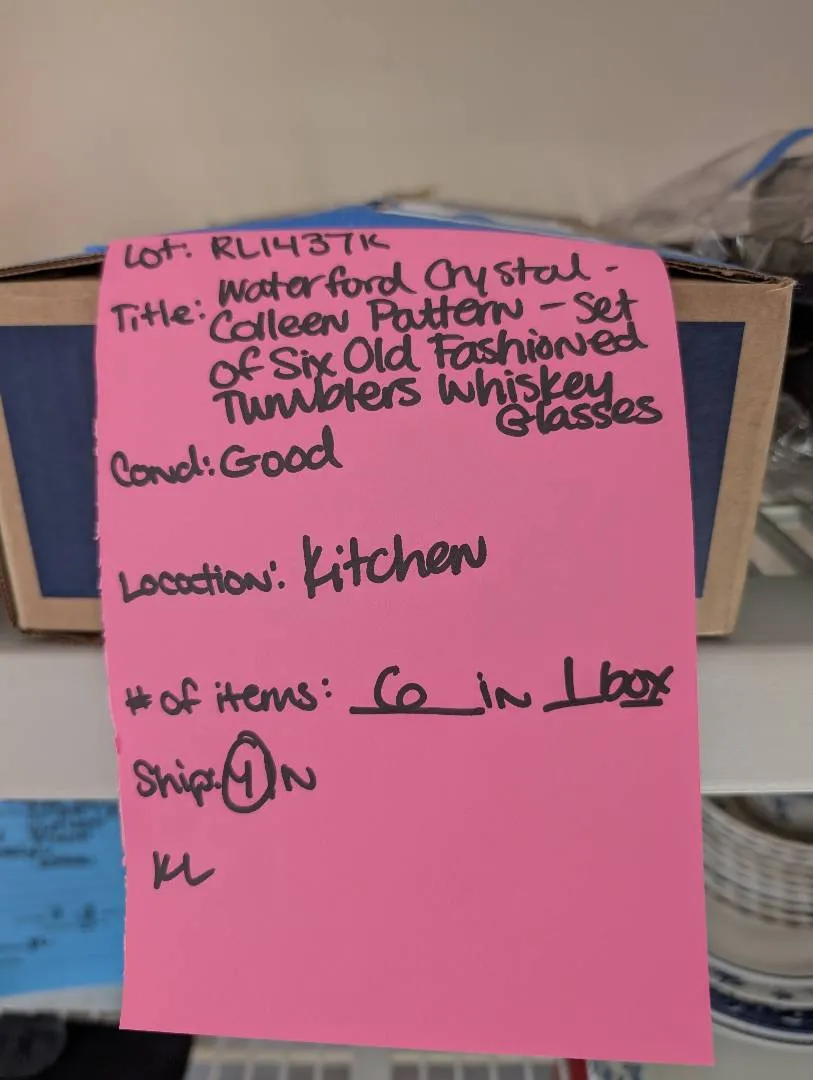 Lot: RL1437K
Title: Waterford Crystal -
Colleen Pattern - Set
of Six Old Fashioned
Tumblers Whiskey
Glasses
Cond: Good
Location: Kitchen
# of items: 6 in 1 box
Ship: Y N
KL